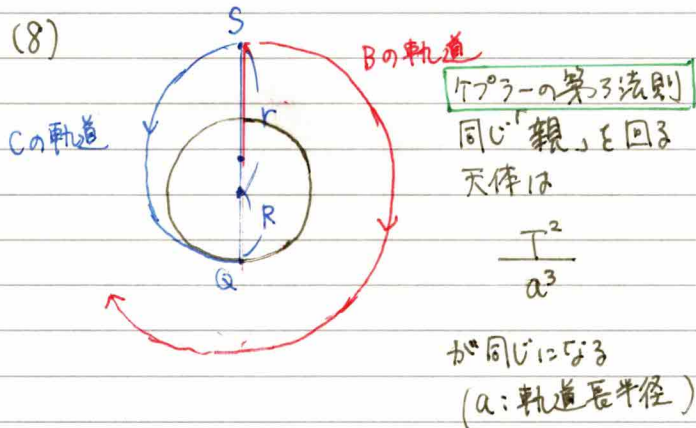 (8)
S
Bの軌道
r
Cの軌道
R
Q
ケプラーの第3法則
同じ「親」を回る
天体は
T²
a³
が同じになる
(a:軌道長半径)